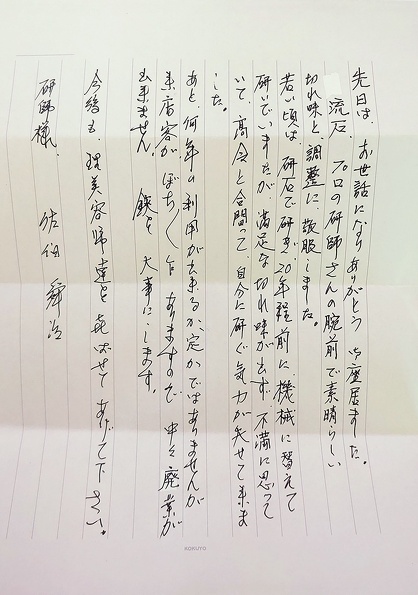 先日は、お世話になりありがとう御座居ました。
流石、プロの研師さんの腕前で素晴らしい
切れ味と調整に、敬服しました。
若い頃は、研石で研ぎ、20年程前に、機械に替えて
研いでいますが、満足な切れ味が出ず、不満に思って
いて、高令と合間って、自分に研ぐ気力が失せて来ま
した。
あと、何年の利用が出来るか、定かではありませんが
来店客がぼちぼち乍ありますので、中々廃業が
出来ません。鋏を大事にします。
今後も、理美容師達を喜ばせてあげて下さい。
研師様、
佐伯 舜治
KOKUYO